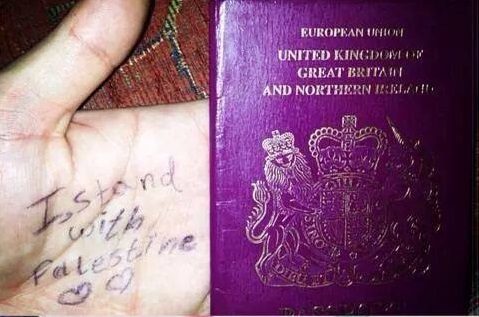 I, stand
with
Palestine
EUROPEAN UNION
UNITED KINGDOM OF
GREAT BRITAIN
AND NORTHERN IRELAND